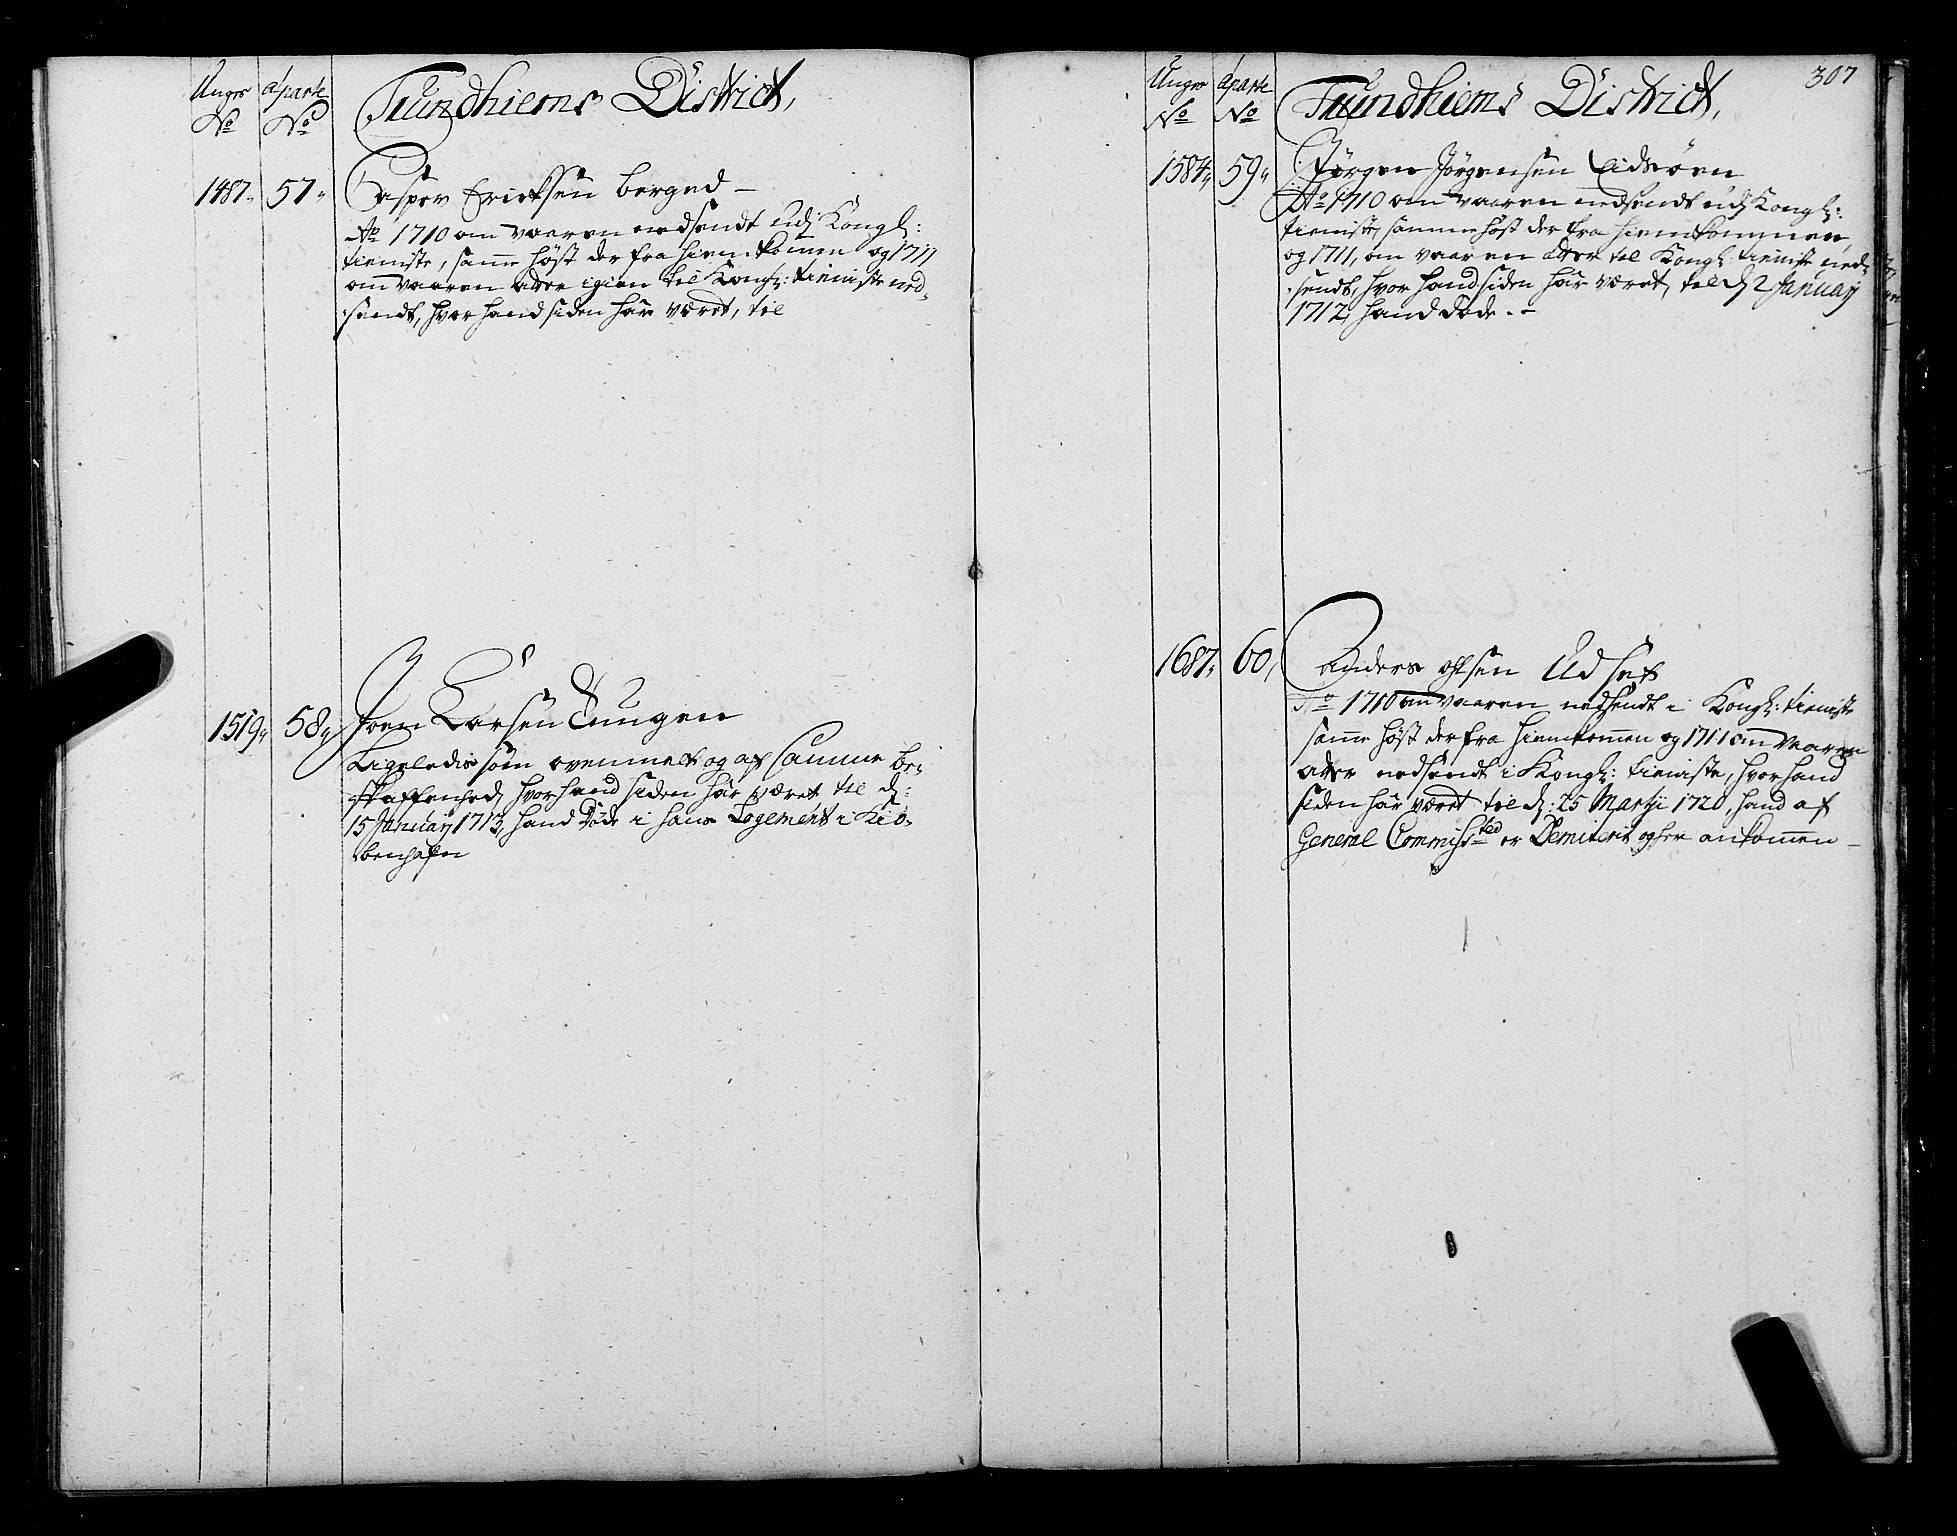 Unges aparte Trundhiems District,
No No
1487. 57. Casper Ericksen berged –
Ao 1710 om vaaren nedsendt udj Kongl:
tieniste, samme høst der fra hiemkomen og 1711
om vaaren atter igien til Kongl: tieniste ned,
sendt, hvor hand siden har været, til
1519. 58. Joen Larsen
Ligeledis som ovenmelt og af samme be,
skaffenhed, hvor hand siden har været til d:
15 January 1713, hand døde i hans Logement i Kiø,
benhafn
307
Unges aparte Trundhiems District,
No No
1584. 59. Jørgen Jørgensen Eidsøren
Ao 1710 om vaaren nedsendt udj Kongl:
tieniste, samme høst der fra hiemkommen,
og 1711, om vaaren atter til Kongl: tieniste ned,
sendt, hvor hand siden har været, til d 2 January
1712, hand døde. –
1687. 60, Anders olsen Udset
Ao 1710 om vaaren nedsendt i Kongl: tieniste
samme høst der fra hiemkomen og 1711 om vaaren
atter nedsendt i Kongl: tieniste, hvor hand
siden har været til d: 25 Martji 1720, hand af
General Commiss:ted er Demiterit og her ankomen –